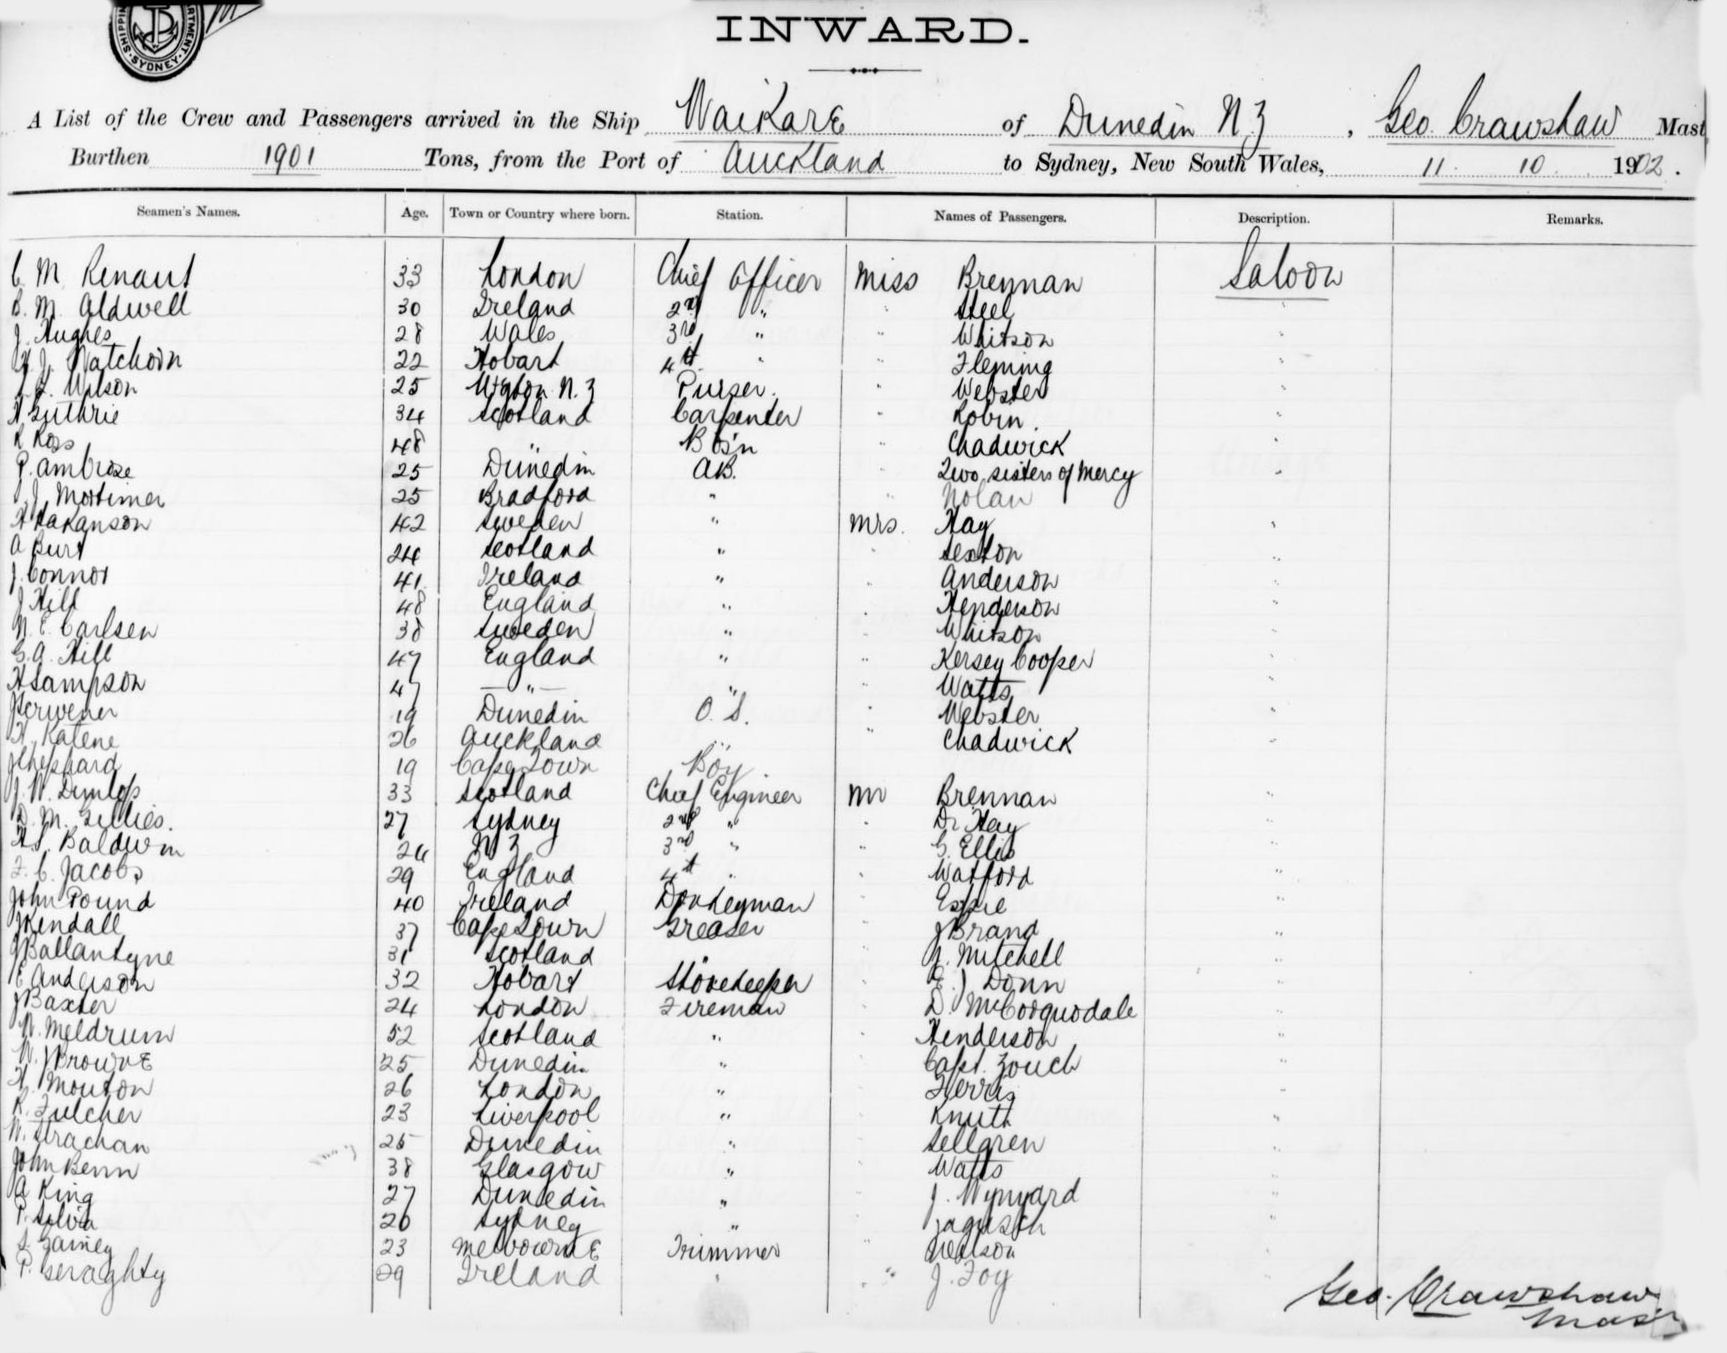 SHIPPING DEPARTMENT · SYDNEY ·
INWARD.
A List of the Crew and Passengers arrived in the Ship Waikare of Dunedin N.Z, Geo. Crawshaw Mast
Burthen 1901 Tons, from the Port of Auckland to Sydney, New South Wales, 11 10 1902.
Seamen's Names. Age. Town or Country where born. Station. Names of Passengers. Description. Remarks.
C. M. Renaut 33 London Chief Officer Miss Brennan Saloon
B. M. Aldwell 30 Ireland 2nd " " Steel "
J. Hughes 28 Wales 3rd " " Whitson "
Watchorn 22 Hobart 4th " " Fleming "
Wilson 25 Wgton N.Z Purser. " Webster "
Guthrie 34 Scotland Carpenter " Robin. "
R Ross 48 " Bosn " Chadwick "
P. Ambrose 25 Dunedin A.B. " Two sisters of Mercy "
J. Mortimer 25 Bradford " " Nolan
H Hakanson 42 Sweden " Mrs. Hay "
A Burt 24 Scotland " " Sexton "
J. Connor 41 Ireland " " Anderson "
J Hill 48 England " " Henderson "
N. E. Carlsen 38 Sweden " " Whitson "
G. A. Hill 47 England " " Kersey Cooper "
H Sampson 47 " " " Watts "
19 Dunedin O.S. " Webster "
H. Katene 26 Auckland " " Chadwick "
J Sheppard 19 Cape Town Boy
J. W. Dunlop 33 Scotland Chief Engineer Mr Brennan "
D. M. Gillies. 27 Sydney 2nd " " Dr Hay "
Baldwin 24 N Z 3rd " " G. Ellis "
F. C. Jacobs 29 England 4th " " Watford "
John Pound 40 Ireland Donkeyman " Espie "
J Kendall 37 Cape Town Greaser " J Brand "
J Ballantyne 31 Scotland " " J. Mitchell "
E Anderson 32 Hobart Storekeeper " J Donn "
J Baxter 24 London Fireman " D. McCorquodale "
W. Meldrum 52 Scotland " " Henderson "
W. J Browne 25 Dunedin " " Capt. Zouch "
H. Mouton 26 London " " Ferris "
R. Fulcher 23 Liverpool " " Knuth "
W. Strachan 25 Dunedin " " Sellgren "
John Benn 38 Glasgow " " Watts "
A King 27 Dunedin " " J. Wynyard "
P. Silva 20 Sydney " "
23 Melbourne Trimmer " Neilson "
P. Geraghty 29 Ireland " " J. Foy "
Geo. Crawshaw
Mastr